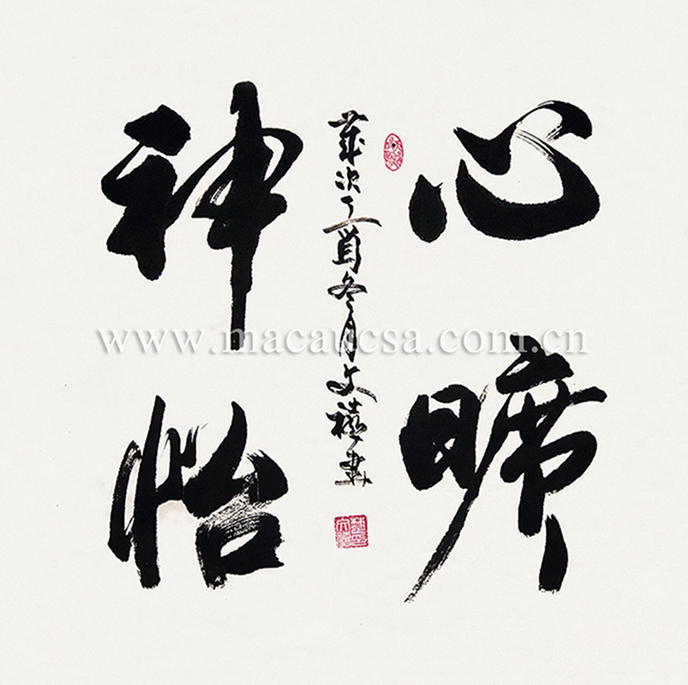 心曠
神怡
歲次丁酉冬月文書
www.macaucsa.com.cn